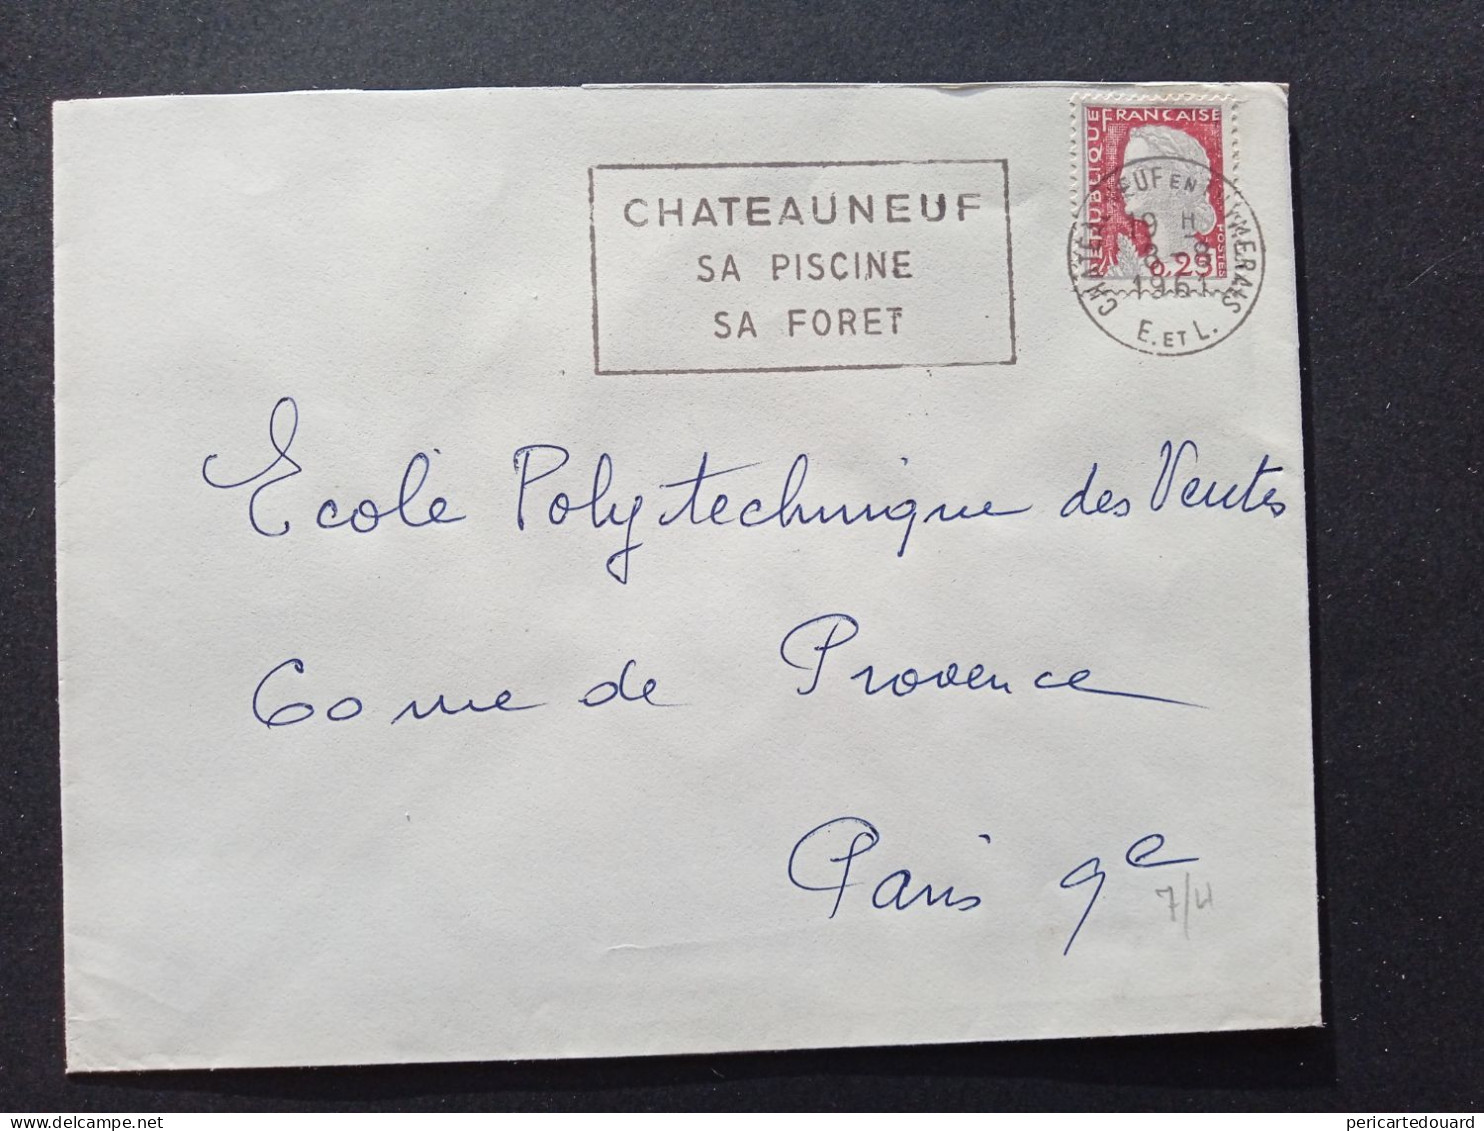 RÉPUBLIQUE FRANCAISE
POSTES
0,25
CHATEAUNEUF EN THYMERAIS
19 H
8 - 8
1961
E. ET L.
CHATEAUNEUF
SA PISCINE
SA FORET
Ecole Polytechnique des Ventes
60 rue de Provence
Paris 9e
7/4
pericartedouard